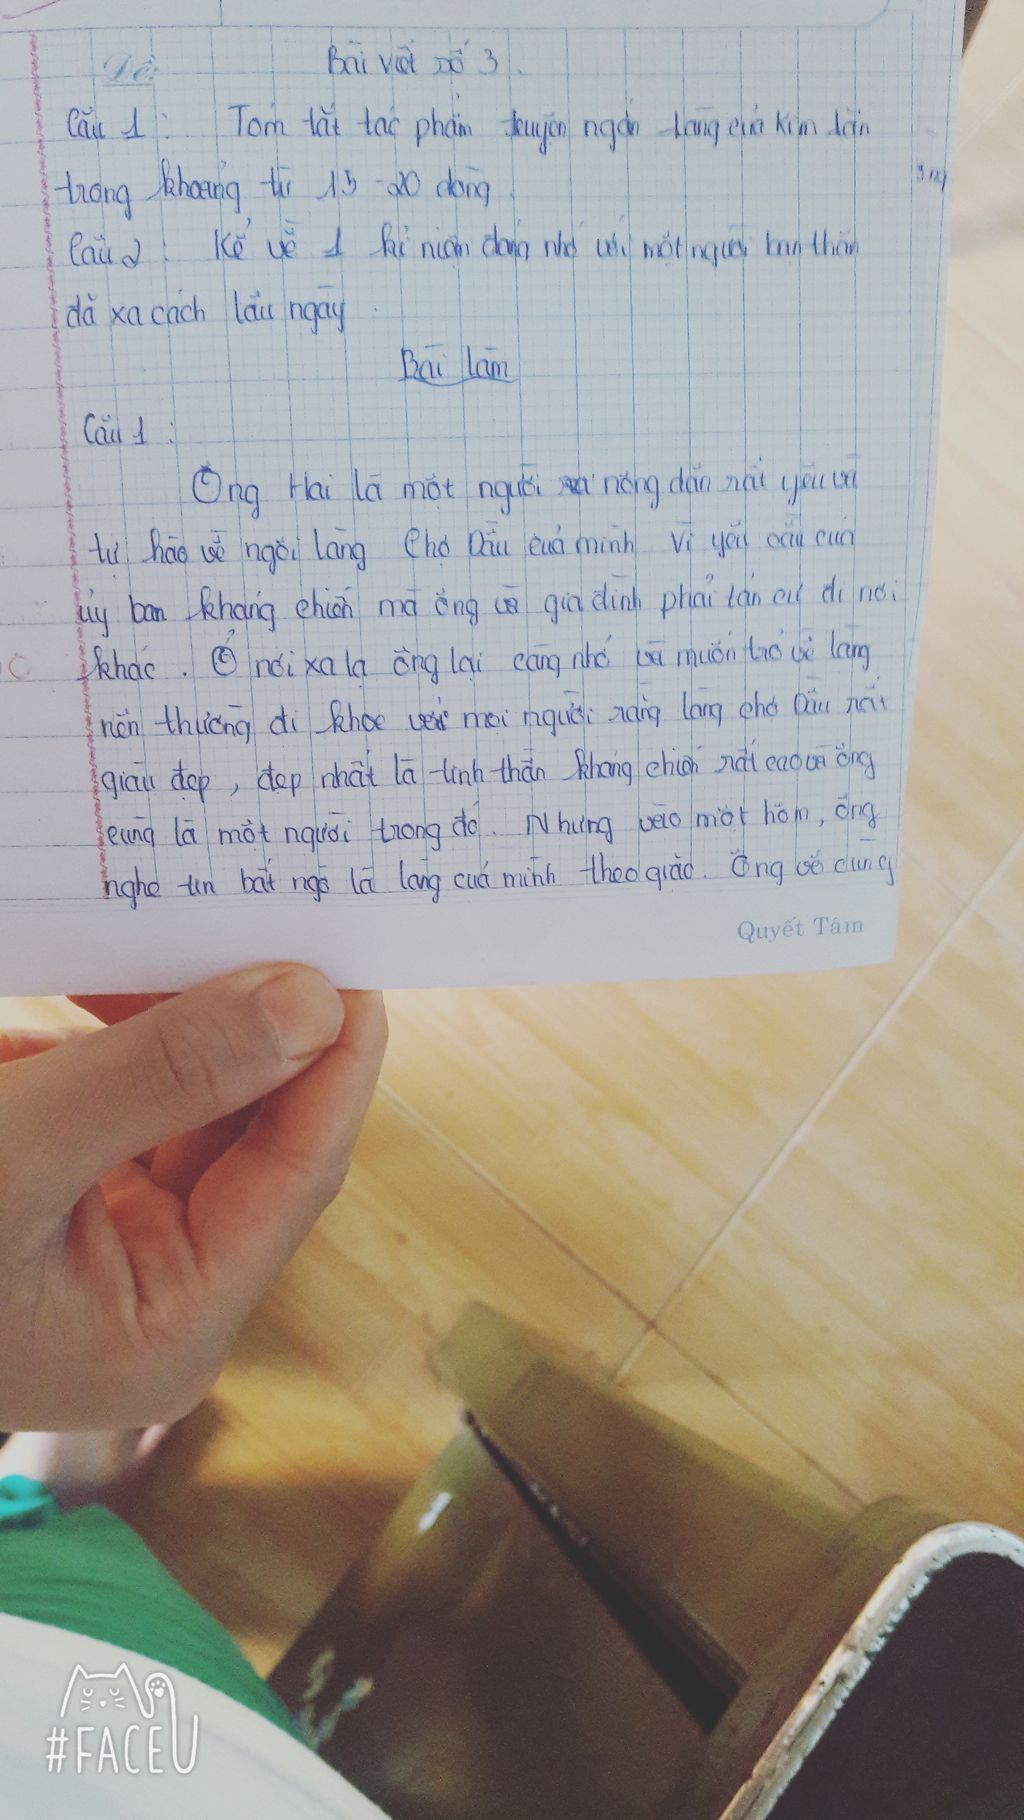 Đề:
Bài viết số 3.
Câu 1: Tóm tắt tác phẩm truyện ngắn Làng của Kim Lân
trong khoảng từ 15-20 dòng.
Câu 2: Kể về 1 kỉ niệm đáng nhớ với một người bạn thân
đã xa cách lâu ngày.
Bài làm
Câu 1:
Ông Hai là một người nông dân rất yêu và
tự hào về ngôi làng Chợ Dầu của mình. Vì yêu cầu của
ủy ban kháng chiến mà ông và gia đình phải tản cư đi nơi
khác. Ở nơi xa lạ ông lại càng nhớ và muốn trở về làng
nên thường đi khoe với mọi người rằng làng chợ Dầu rất
giàu đẹp, đẹp nhất là tinh thần kháng chiến rất cao và ông
cũng là một người trong đó. Nhưng vào một hôm, ông
nghe tin bất ngờ là làng của mình theo giặc. Ông vô cùng
Quyết Tâm
#FACEU